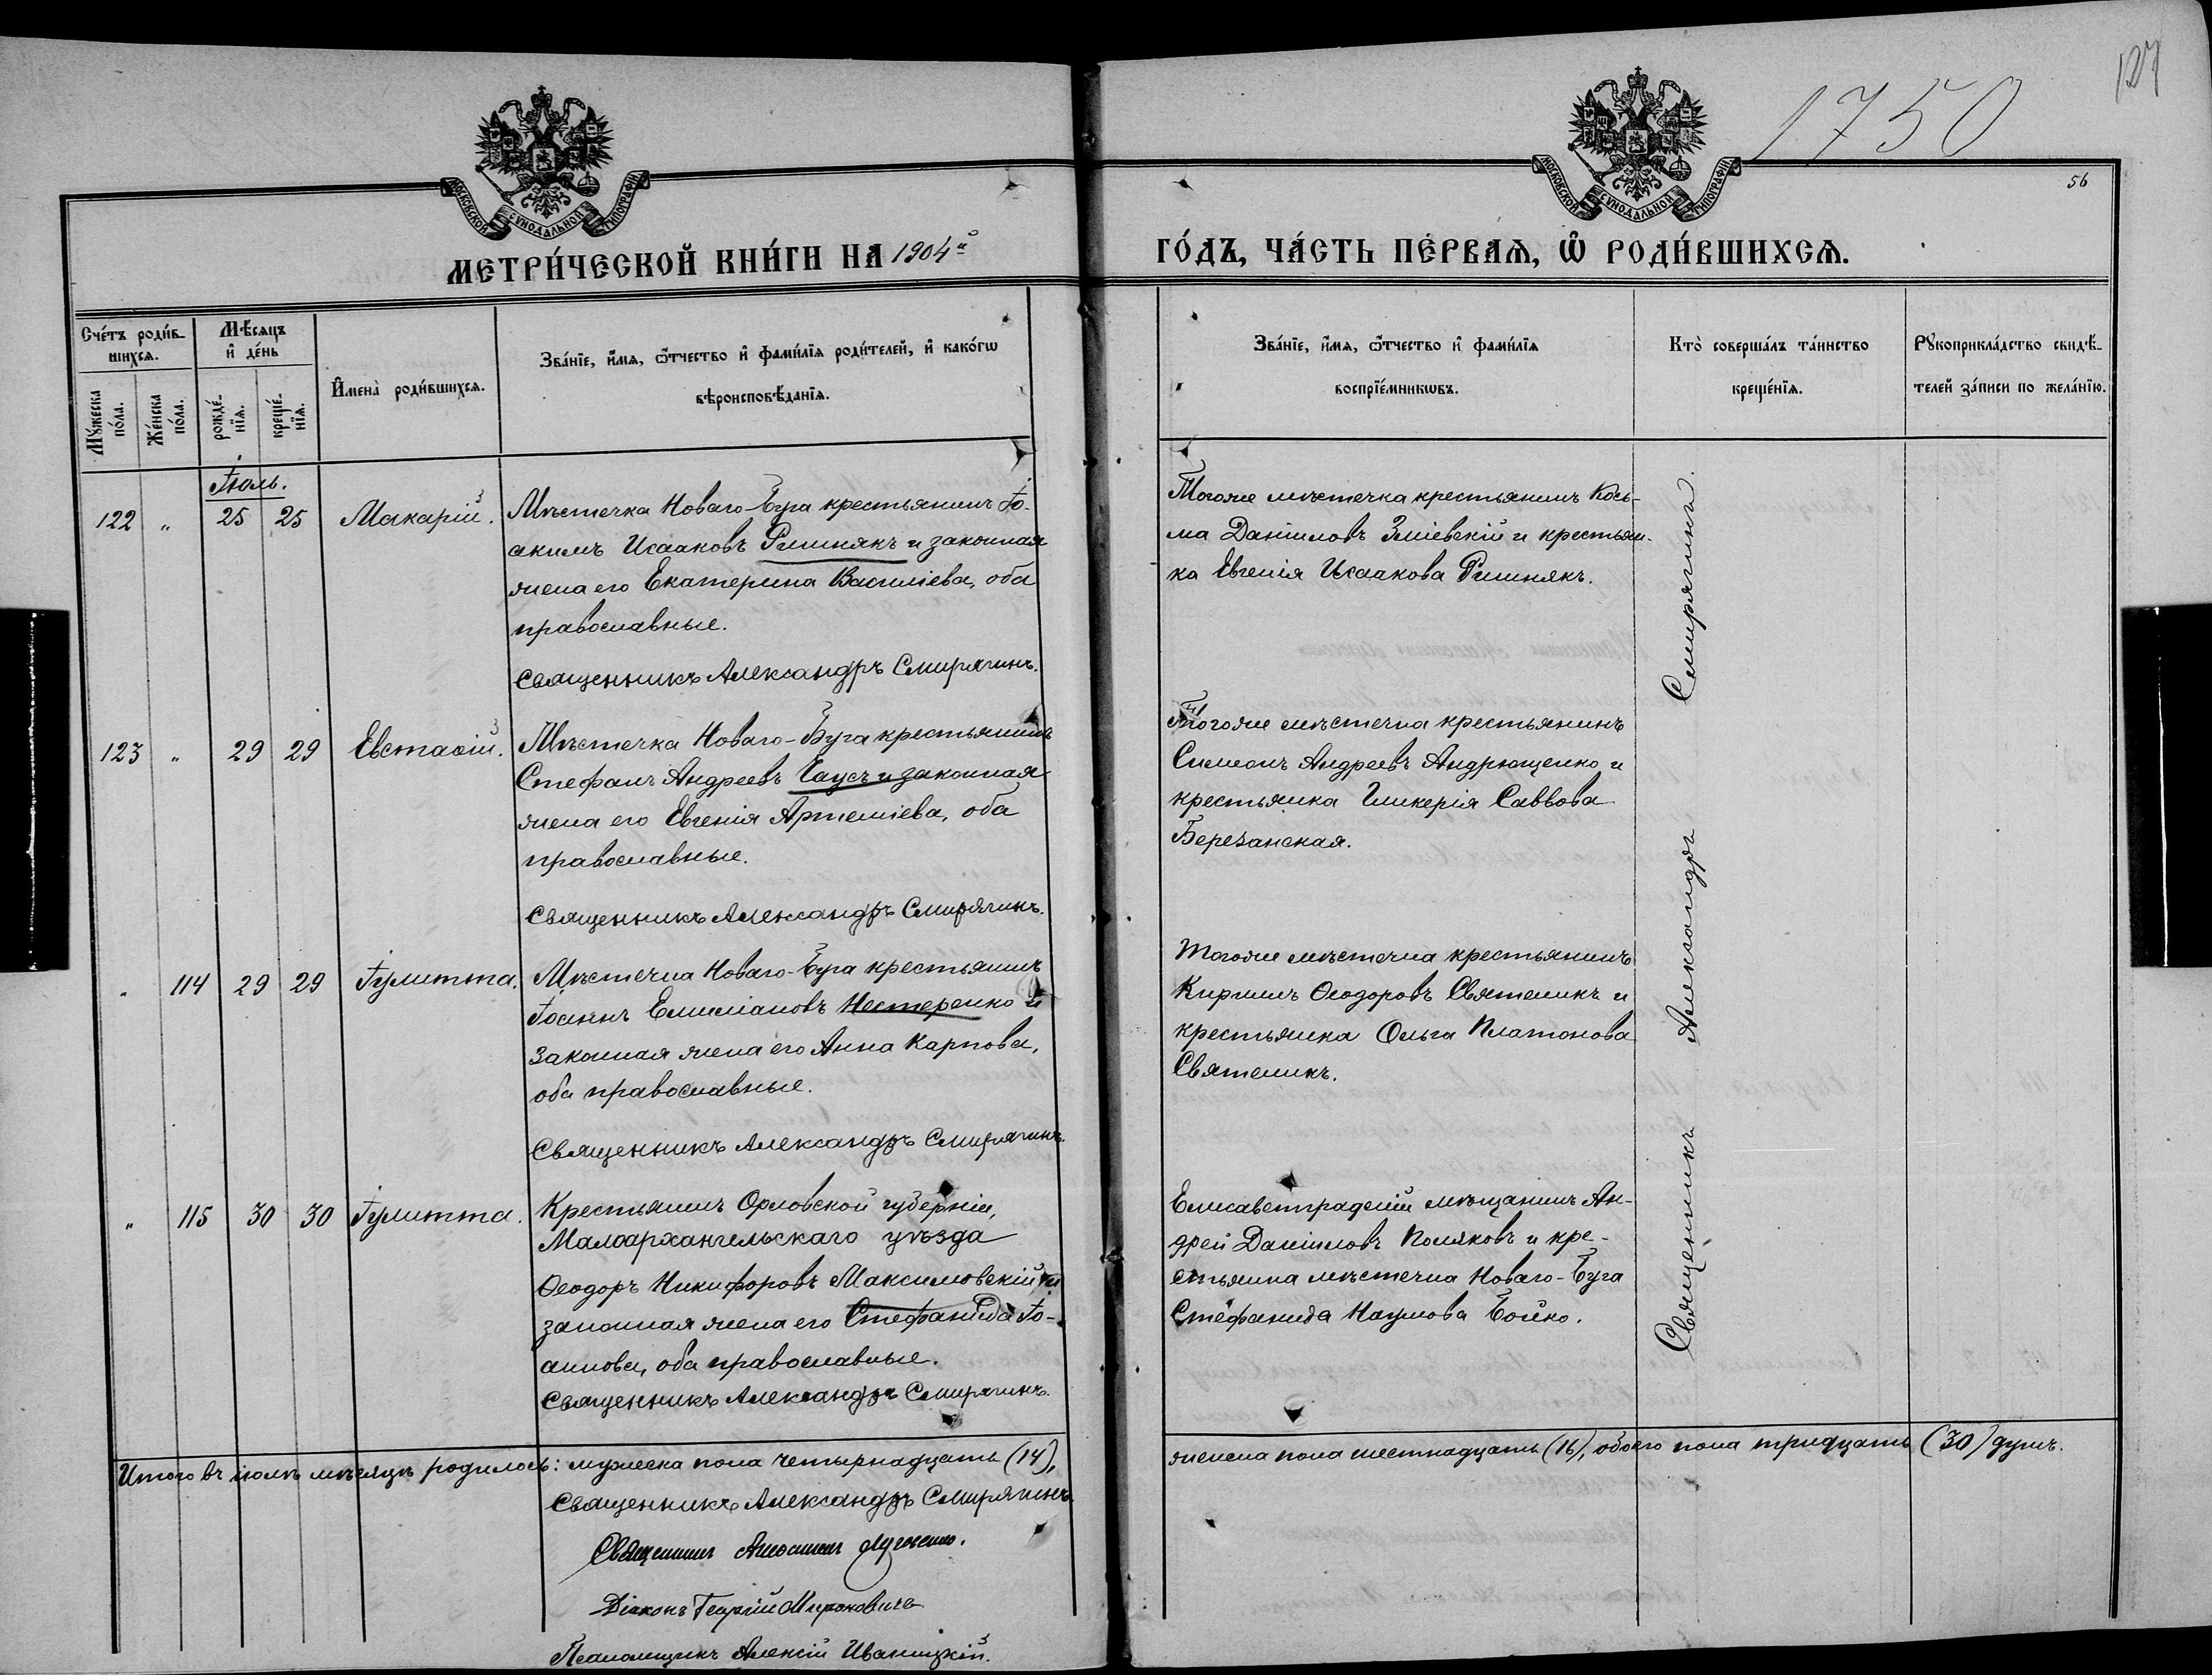 127
1750
56
МОСКОВСКОЙ СУНОДАЛЬНОЙ ТИПОГРАФІИ
МОСКОВСКОЙ СУНОДАЛЬНОЙ ТИПОГРАФІИ
МЕТРИ́ЧЕСКОЙ КНИ́ГИ НА 1904й ГО́ДЪ, ЧА́СТЬ ПЕ́РВАЯ, Ѽ РОДИ́ВШИХСЯ.
Сче́тъ роди́в-
шихся.
Мѣ́сяцъ
и҆ де́нь
Му́жеска
по́ла.
Же́нска
по́ла.
рожде́-
нїя.
креще́-
нїя.
И҆мена̀ роди́вшихся.
Зва́нїе, и҆́мя, ѻ҆́тчество и҆ фами́лїя роди́телей, и҆ како́гѡ
вѣроисповѣ́данїя.
Зва́нїе, и҆́мя, ѻ҆́тчество и҆ фами́лїя
воспрїе́мникѡвъ.
Кто̀ соверша́лъ та́инство
креще́нїя.
Рꙋкоприкла́дство свидѣ́-
телей за́писи по жела́нїю.
Іюль.
122 " 25 25 Макарій.
Мѣстечка Новаго-Буга крестьянинъ Іо-
акимъ Исааковъ Гишнякъ и законная
жена его Екатерина Василіева, оба
православные.
Священникъ Александръ Смирягинъ.
Тогоже мѣстечка крестьянинъ Кось-
ма Даніиловъ Зміевскій и крестьян-
ка Евгенія Исаакова Гишнякъ.
123 " 29 29 Евстаѳій.
Мѣстечка Новаго-Буга крестьянинъ
Стефанъ Андреевъ Гаусъ и законная
жена его Евгенія Артеміева, оба
православные.
Священникъ Александръ Смирягинъ.
Тогоже мѣстечка крестьянинъ
Симеонъ Андреевъ Андрющенко и
крестьянка Гликерія Саввова
Березанская.
" 114 29 29 Іулитта.
Мѣстечка Новаго-Буга крестьянинъ
Іоаннъ Емиліановъ Нестеренко и
законная жена его Анна Карпова,
оба православные.
Священникъ Александръ Смирягинъ.
Тогоже мѣстечка крестьянинъ
Кириллъ Ѳеодоровъ Святеникъ и
крестьянка Ольга Платонова
Святеликъ.
" 115 30 30 Іулитта.
Крестьянинъ Орловской губерніи,
Малоархангельскаго уѣзда
Ѳеодоръ Никифоровъ Максимовскій и
законная жена его Стефанида Іо-
аннова, оба православные.
Священникъ Александръ Смирягинъ.
Елисаветградскій мѣщанинъ Ан-
дрей Даніиловъ Поляковъ и кре-
стьянка мѣстечка Новаго-Буга
Стефанида Наумова Бойко.
Священникъ Александръ Смирягинъ.
Итого въ іюлѣ мѣсяцѣ родилось: мужеска пола четырнадцать (14),
женска пола шестнадцать (16), обоего пола тридцать (30) душъ.
Священникъ Александръ Смирягинъ.
Священникъ
Діаконъ Георгій Мироновичъ
Псаломщикъ Алексій Иваницкій.